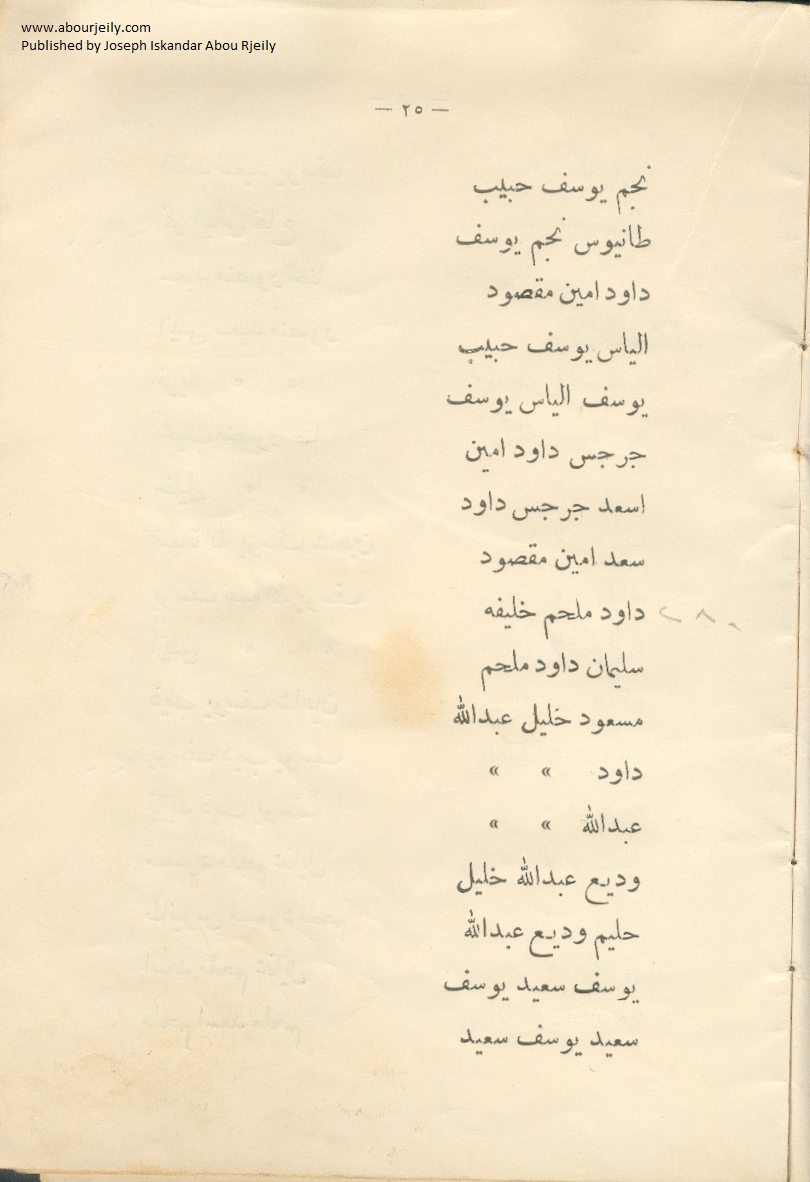 www.abourjeily.com
Published by Joseph Iskandar Abou Rjeily
— ٢٥ —
نجم يوسف حبيب
طانيوس نجم يوسف
داود امين مقصود
الياس يوسف حبيب
يوسف الياس يوسف
جرجس داود امين
اسعد جرجس داود
سعد امين مقصود
داود ملحم خليفه
سليمان داود ملحم
مسعود خليل عبدالله
داود » »
عبدالله » »
وديع عبدالله خليل
حليم وديع عبدالله
يوسف سعيد يوسف
سعيد يوسف سعيد